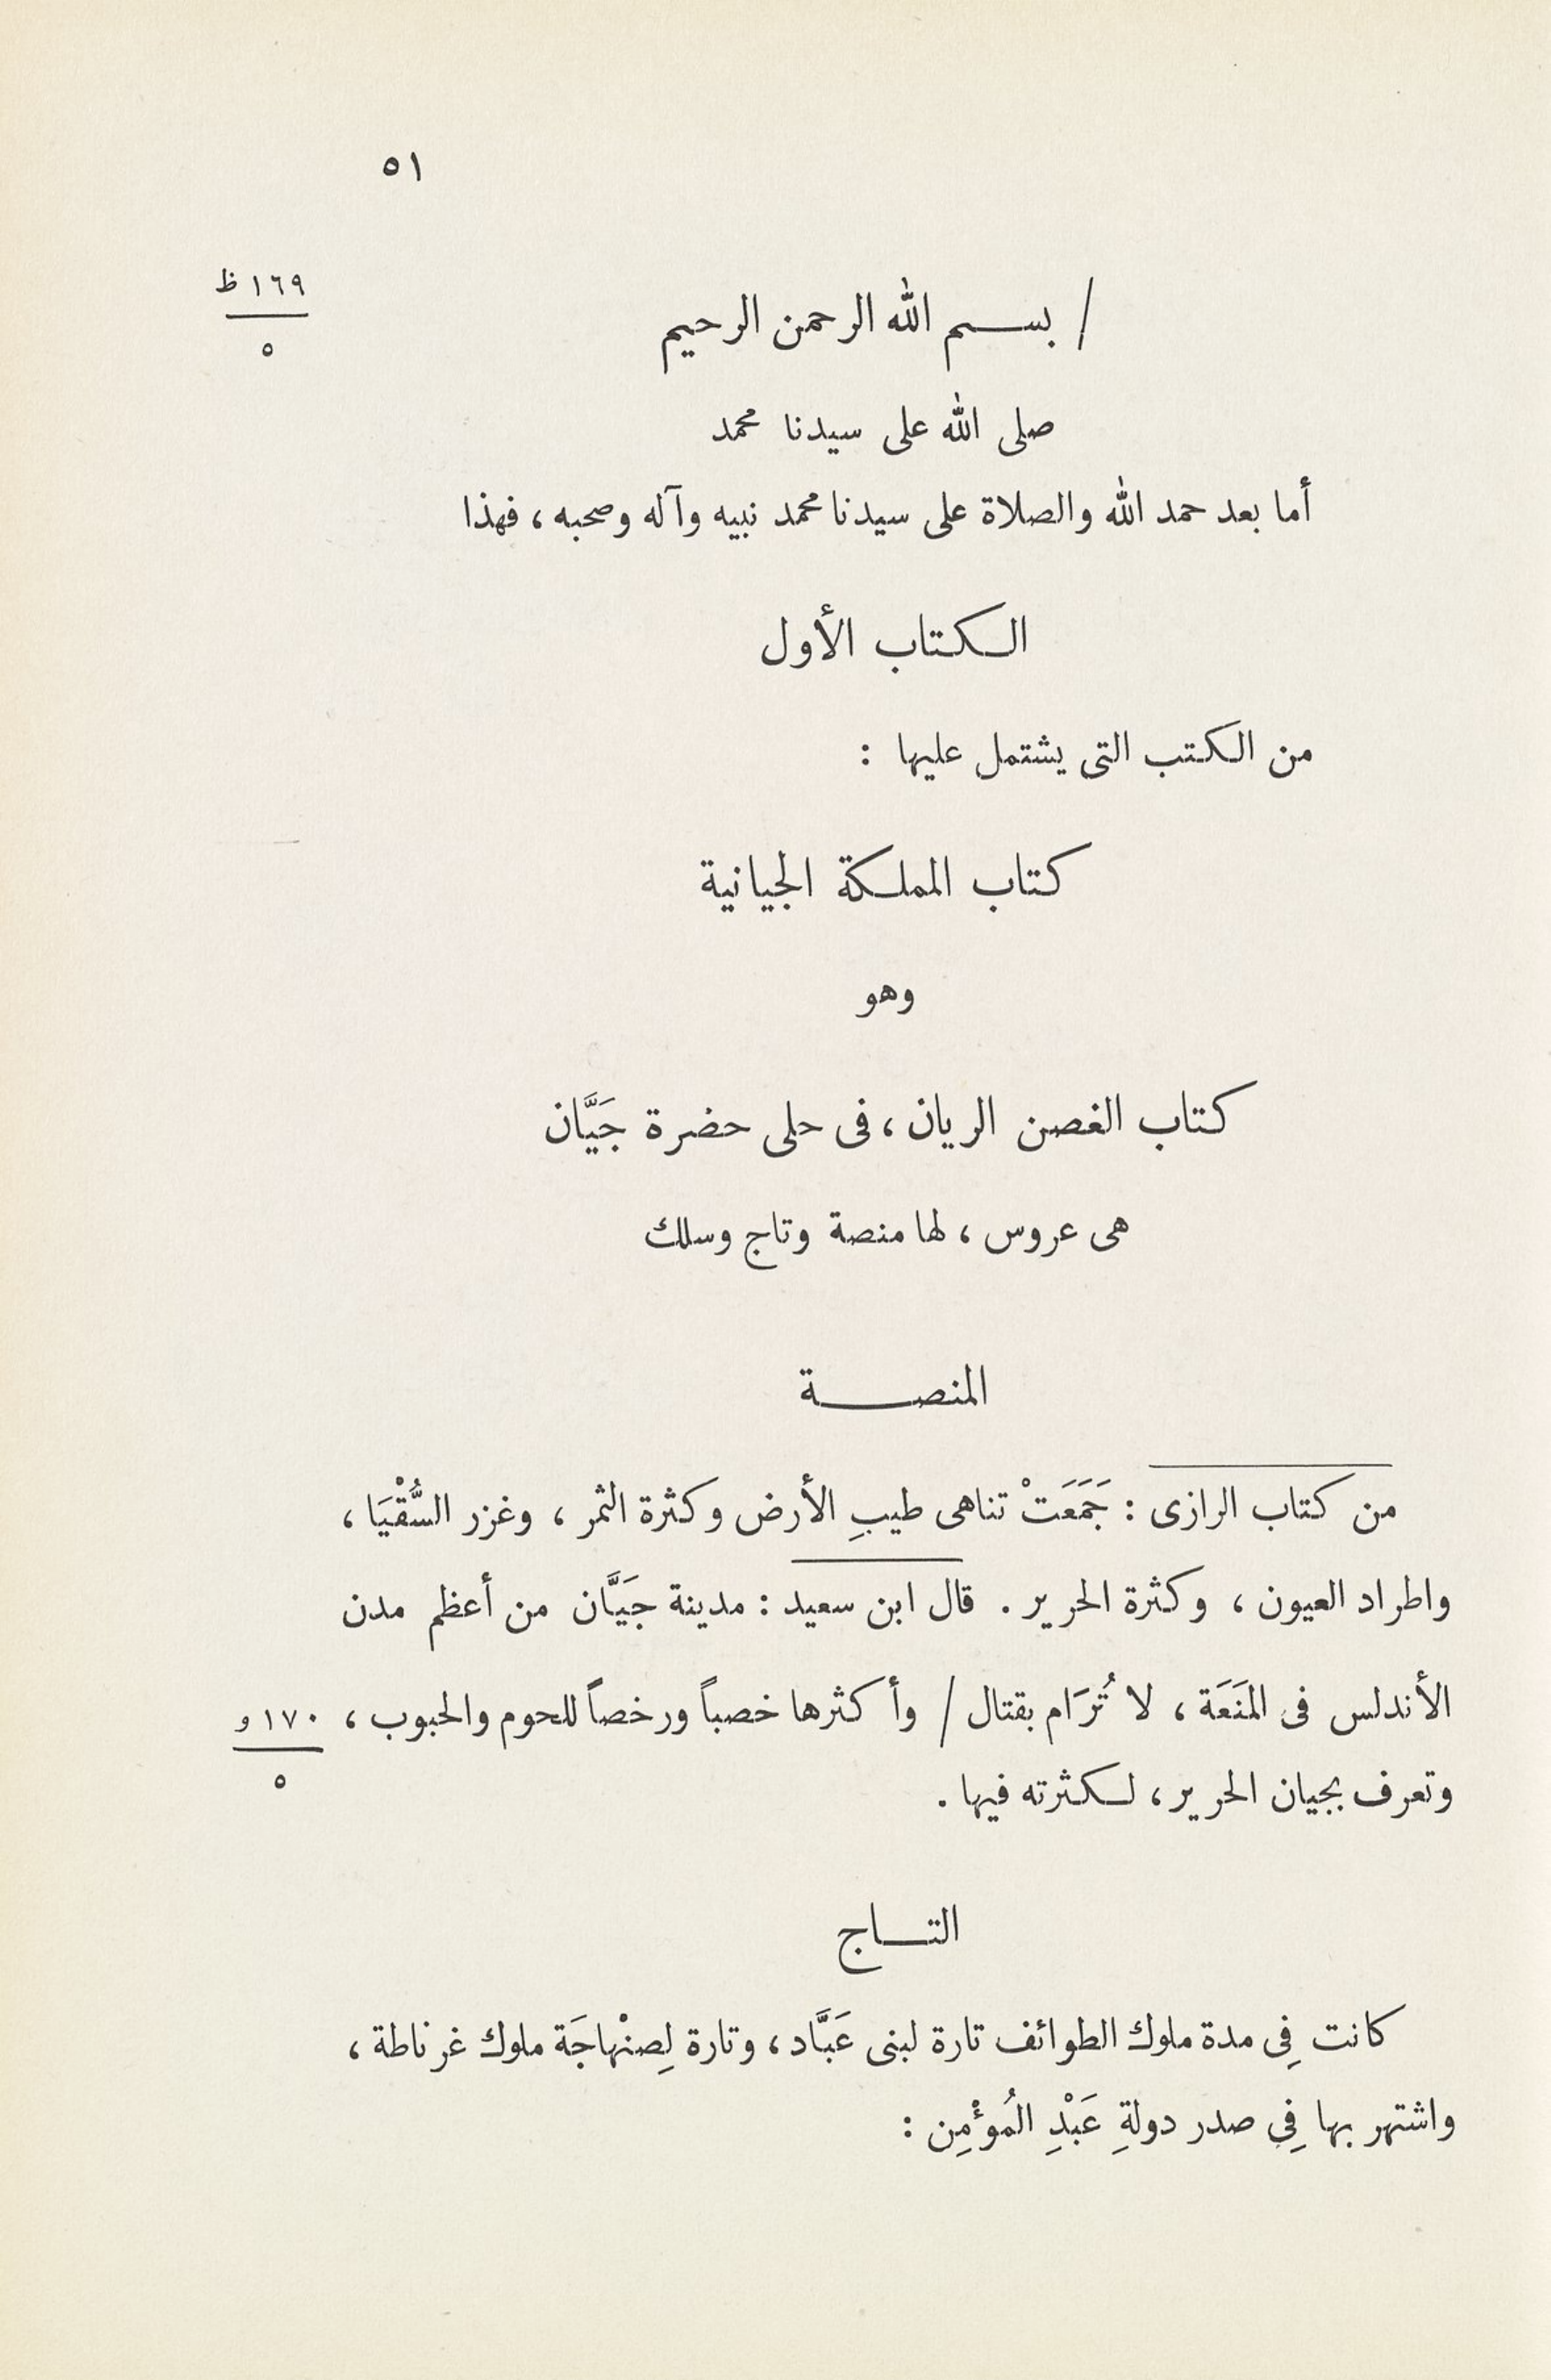 ٥١
١٦٩ ظ
٥
/ بسم الله الرحمن الرحيم
صلى الله على سيدنا محمد
أما بعد حمد الله والصلاة على سيدنا محمد نبيه وآله وصحبه ، فهذا
الكتاب الأول
من الكتب التى يشتمل عليها :
كتاب المملكة الجيانية
وهو
كتاب الغصن الريان ، فى حلى حضرة جَيَّان
هى عروس ، لها منصة وتاج وسلك
المنصة
من كتاب الرازى : جَمَعَتْ تناهى طيبِ الأرض وكثرة الثمر ، وغزر السُّقْيَا ،
واطراد العيون ، وكثرة الحرير . قال ابن سعيد : مدينة جَيَّان من أعظم مدن
الأندلس فى المَنَعَة ، لا تُرَام بقتال / وأكثرها خصباً ورخصاً للحوم والحبوب ،
١٧٠ و
٥
وتعرف بجيان الحرير ، لكثرته فيها .
التاج
كانت فِى مدة ملوك الطوائف تارة لبنى عَبَّاد ، وتارة لِصنْهاجَة ملوك غرناطة ،
واشتهر بها فِى صدر دولةِ عَبْدِ المُؤْمِن :